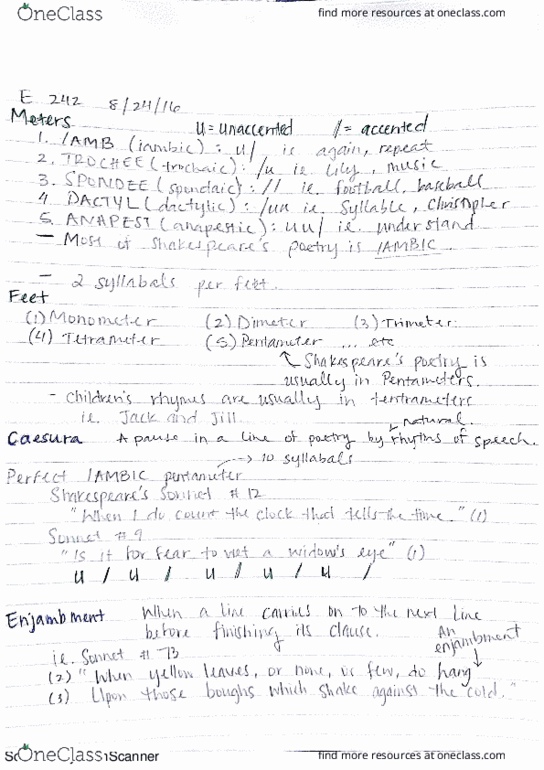 OneClass
find more resources at oneclass.com
E 242 8/24/16
Meters u = unaccented / = accented
1. IAMB (iambic) : u/ ie again, repeat
2. TROCHEE (trochaic) : /u ie Lily, music
3. SPONDEE (spondaic) : // ie. football, baseball
4. DACTYL (dactylic) : /uu ie. Syllable, Christopher
5. ANAPEST (anapestic) : uu/ ie. understand
— Most of Shakespeare's poetry is IAMBIC.
— 2 syllabals per feet.
Feet
(1) Monometer (2) Dimeter (3) Trimeter
(4) Tetrameter (5) Pentameter ... etc
Shakespeare's poetry is
usually in Pentameters.
- Children's rhymes are usually in tentrameters
ie. Jack and Jill.
natural.
Caesura A pause in a line of poetry by rhythms of speech.
→ 10 syllabals
Perfect IAMBIC pentameter
Shakespeare's Sonnet # 12
"When I do count the clock that tells the time." (1)
Sonnet # 9
"Is it for fear to wet a widow's eye" (1)
u / u / u / u / u /
Enjambment When a line carries on to the next line
before finishing its clause.
An
enjambment
ie. Sonnet # 73
(2) "When yellow leaves, or none, or few, do hang
(3) Upon those boughs which shake against the cold."
OneClass
Scanner
find more resources at oneclass.com